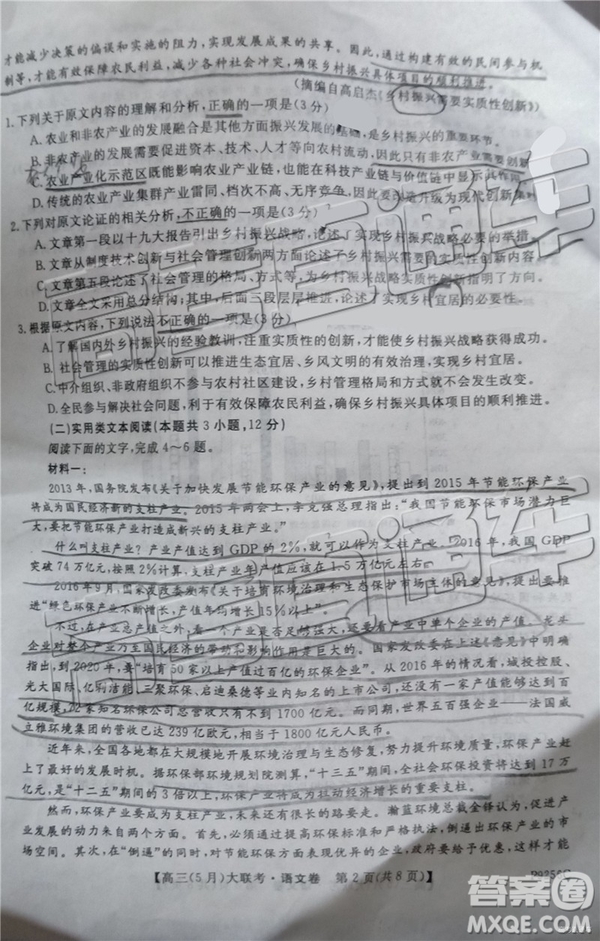 才能减少决策的偏误和实施的阻力，实现发展成果的共享。因此，通过构建有效的民间参与机
制等，才能有效保障农民利益，减少各种社会冲突，确保乡村振兴具体项目的顺利推进。
（摘编自高启杰《乡村振兴需要实质性创新》）
1.下列关于原文内容的理解和分析，正确的一项是(3分)
A.农业和非农产业的发展融合是其他方面振兴发展的基础，是乡村振兴的重要环节。
B.非农产业的发展需要促进资本、技术、人才等要素向农村流动，因此我们只有
C.农业产业化示范区既能影响农业产业链，也能在科技产业链与价值链中显示
D.传统的农业产业集群产业雷同、档次不高、无序竞争，因此要改造升级为现代创新集
2.下列对原文论证的相关分析，不正确的一项是(3分)
A.文章第一段以十九大报告引出乡村振兴战略，论述了实现乡村振兴战略必要的举措。
B.文章从制度技术创新与社会管理创新两方面论述了乡村振兴需要实质性创新。
C.文章第五段论述了社会管理的格局、方式等，为社会管理实质性创新指明了方向。
D.文章采用了总分结构，后面三段层层推进，论述了实现乡村宜居的必要性。
3.根据原文内容，下列说法不正确的一项是(3分)
A.了解国内外乡村振兴的经验教训，注重实质性的创新，才能使乡村振兴战略获得成功。
B.社会管理的实质性创新可以推进生态宜居、乡风文明的有效治理，实现乡村宜居。
C.中介组织、非政府组织参与农村社区建设，对乡村管理格局创新有利，
D.民众参与解决社会问题，利于有效保障农民利益，确保乡村振兴具体项目的顺利推进。
(二)实用类文本阅读(本题共3小题，12分)
阅读下面的文字，完成4～6题。
材料一：
2013年，国务院发布《关于加快发展节能环保产业的意见》，提出到2015年节能环保产业
将成为国民经济新的支柱产业。2015年两会上，李克强总理指出：“我国节能环保市场潜力巨
大，要把节能环保产业打造成新兴的支柱产业。”
什么叫支柱产业？产业产值达到GDP的2%，就可以称作支柱产业。2016年，我国GDP
突破74万亿元，按照2%计算，支柱产业年产值应该在1.5万亿元左右。
2016年9月，国家发改委发布《关于培育环境治理和生态保护市场主体的意见》，提出要推
进“绿色环保产业不断增长，产值年均增长15%以上”。
不过，支柱产业除了看一个产业是否足够强大，还要看产业中单个企业的产值、龙头
企业对整个产业乃至国民经济的带动和影响作用是巨大的。国家发改委在上述《意见》中明确
指出，到2020年，要“培育50家以上产值过百亿的环保企业”。从2016年的情况看，城投控股、
光大国际、亿利洁能、三聚环保、启迪桑德等业内知名的上市公司，还没有一家的产值达到百
亿规模，22家知名环保公司总营收只有不到1700亿元。而同时期，世界五百强企业——法国威
立雅环境集团的营收已达239亿欧元，相当于1800亿元人民币。
近年来，全国各地都在大规模地开展环境治理与生态修复，努力提升环境质量，环保产业赶
上了最好的发展时机。据环保部环境规划院测算，“十三五”期间，全社会环保投资将达到17万
亿元，是“十二五”期间的3倍以上，环保产业将成为拉动经济增长的重要支柱。
然而，环保产业要成为支柱产业，未来还有很长的路要走。瀚蓝环境总裁金铎认为，促进产
业发展的动力来自两个方面。首先，必须通过提升环保标准和加强环保执法，淘汰掉
的企业。在“倒逼”的同时，要给予环境方面表现优异的企业、尤其是环保企业
【高三(5月)大联考·语文卷 第2页(共8页)】
答案圈
MXQE.COM